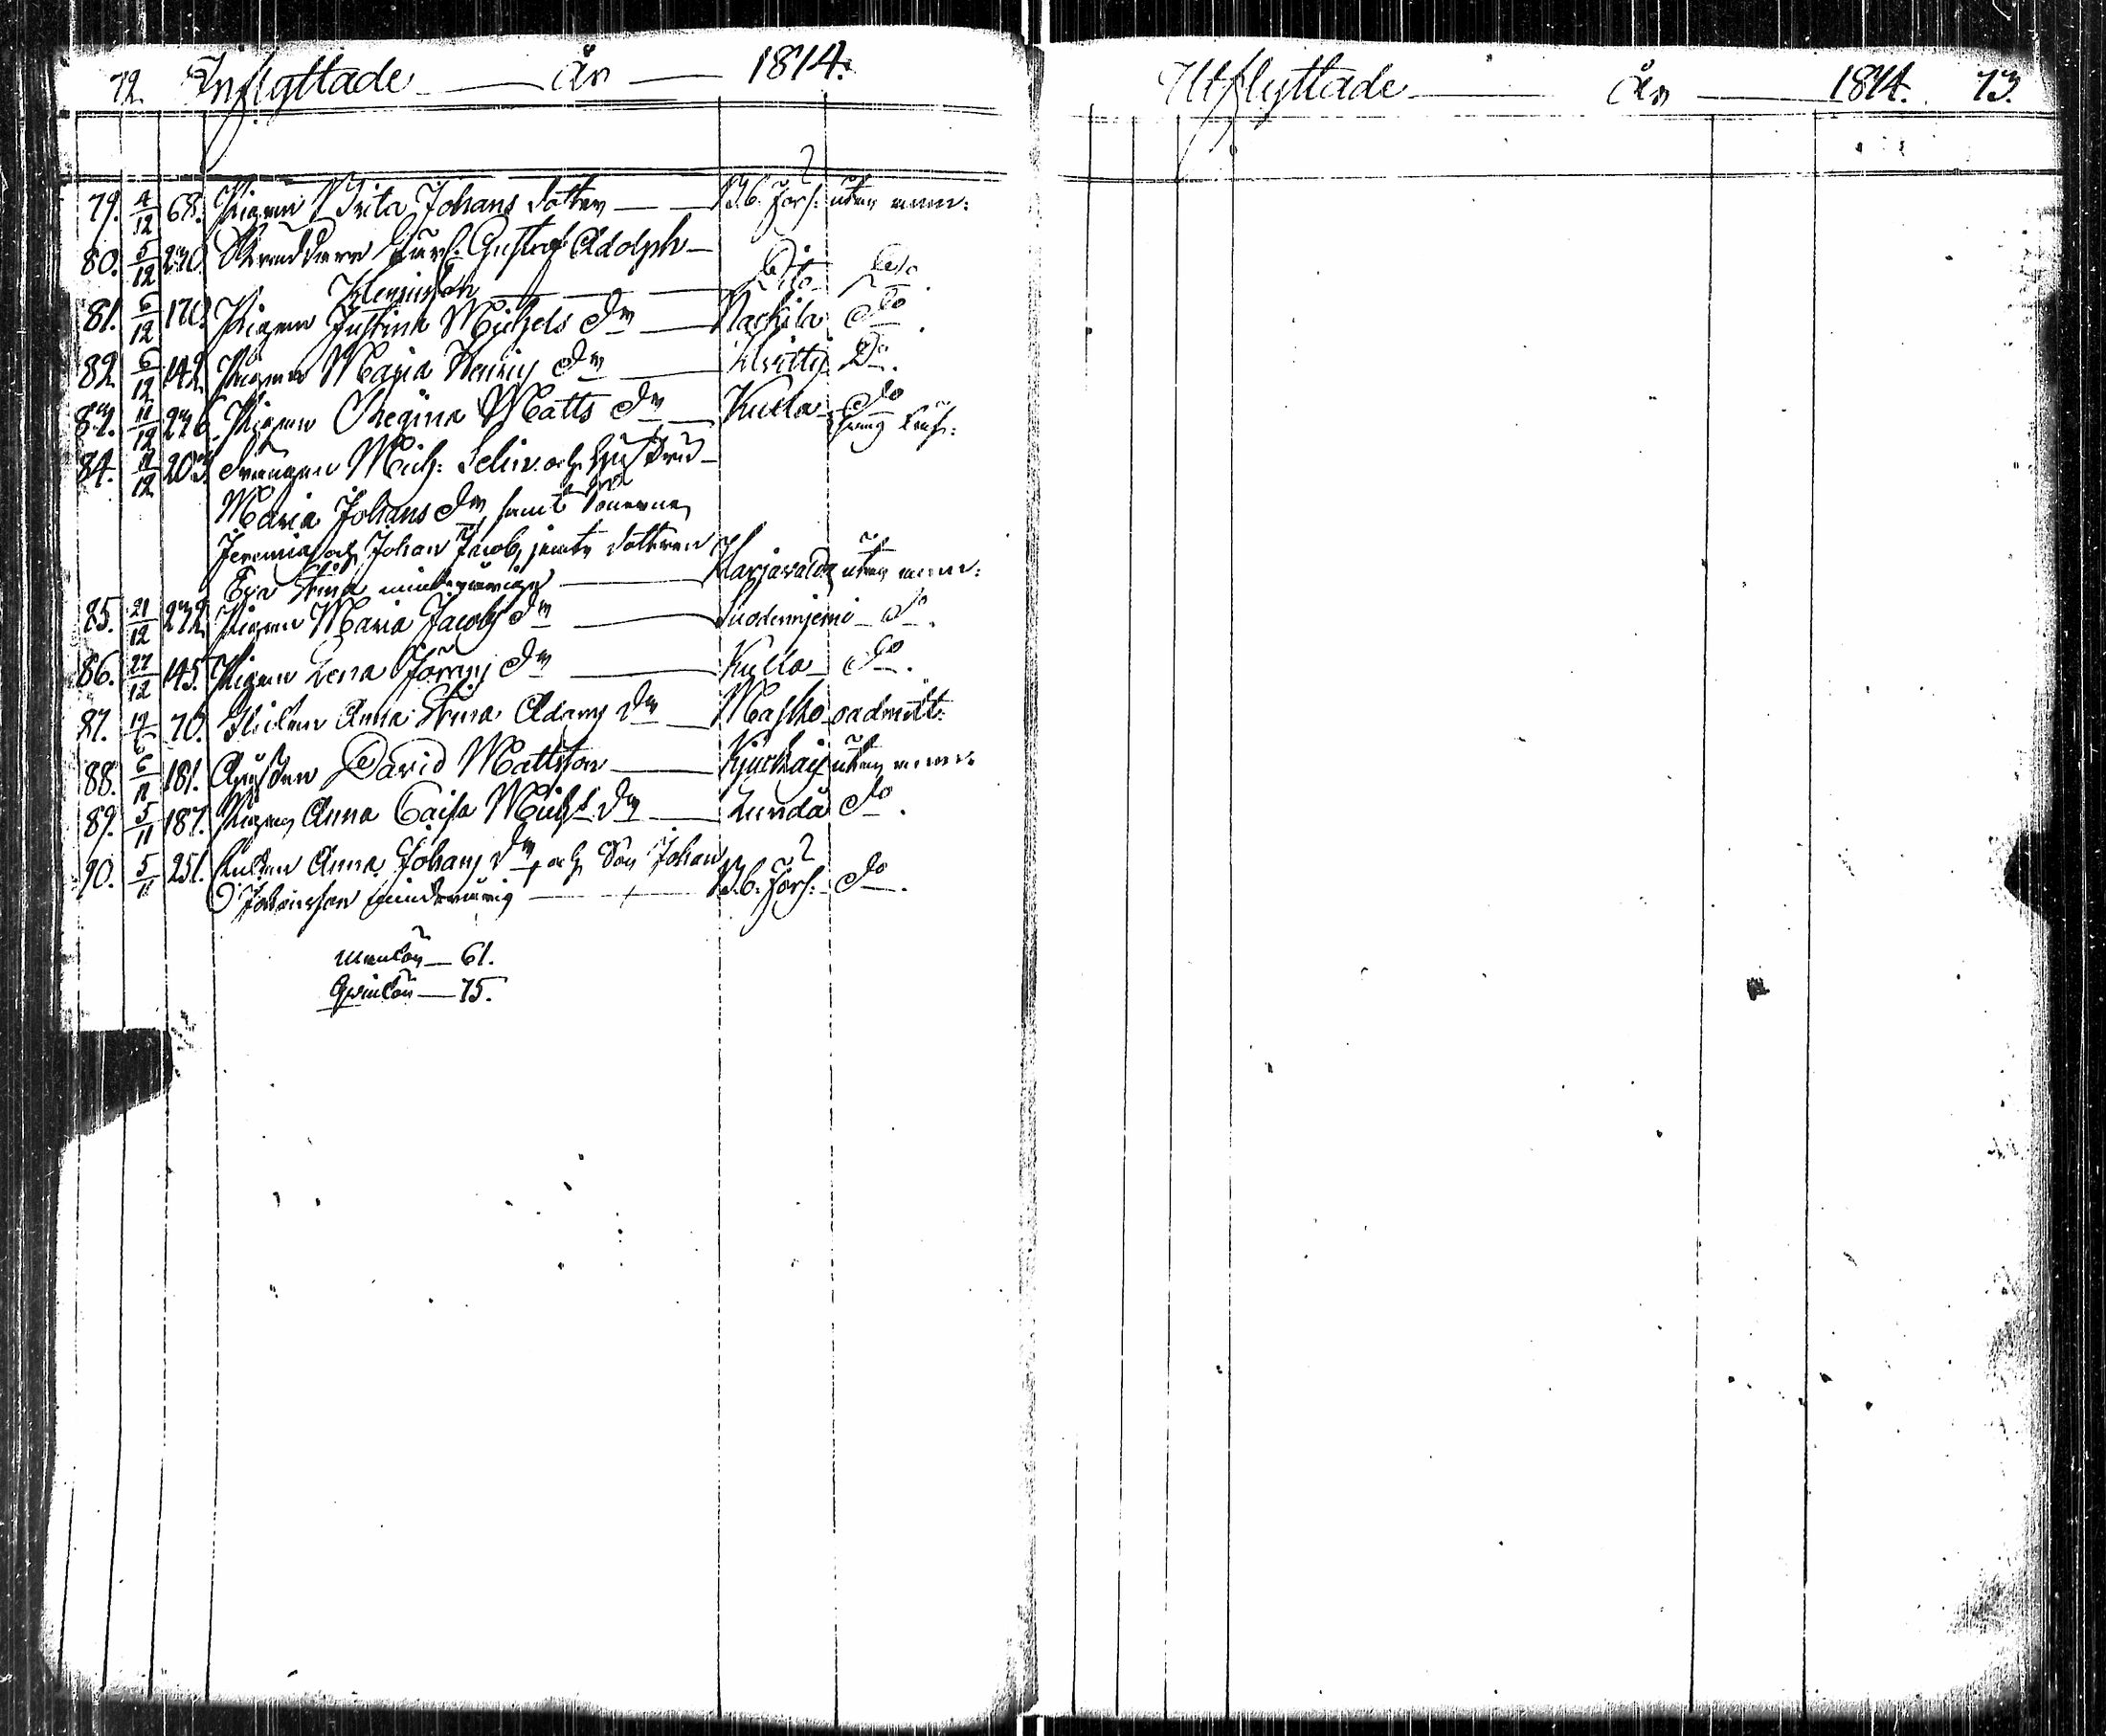 72. Inflyttade år 1814.
79. 4/12 68. Pigan Brita Johans dotter B.b. Förs: utan anm:
80. 5/12 230. Skräddare Gustaf Adolph
Dito Do.
81. 6/12 170. Pigan Justina Michels Dr Nackila Do.
82. 6/12 142. Pigan Maria Henrics Dr Klvitti Do.
83. 11/12 236. Pigan Regina Matts Dr Kulla Do
84. 11/12 203. Drängen Mich: Selin och Hustru
Maria Johans Dr samt Sönerna
Jeremias och Johan Jacob, jemte dotteren
Eva Stina minderårige Harjavalda utan anm:
85. 21/12 232. Pigan Maria Jacobs Dr Suodenniemi Do.
86. 27/12 145. Pigan Lena Görans Dr Kulla Do.
87. 70. Flickan Anna Stina Adams Dr Masko oadmitt:
88. 6/11 181. David Mattsson utan anm:
89. 5/11 187. Pigan Anna Caisa Michs Dr Do.
90. 5/11 251. Enkan Anna Johans Dr och Son Johan
Johansson minderårig B.b. Förs: Do.
Mankön 61.
Qvinkön 75.
Utflyttade År 1814. 73.